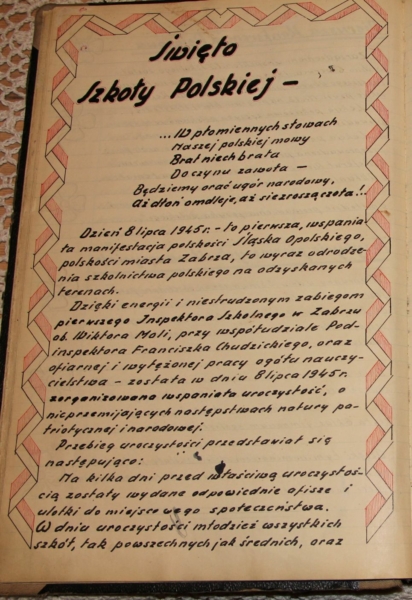 Święto
Szkoły Polskiej –
... W płomiennych słowach
Naszej polskiej mowy
Brat niech brata
Do czynu zawoła –
Będziemy orać ugór narodowy,
Aż dłoń omdleje, aż się zroszą czoła!..
Dzień 8 lipca 1945 r. – to pierwsza, wspania-
ła manifestacja polskości Śląska Opolskiego,
polskości miasta Zabrza, to wyraz odrodze-
nia szkolnictwa polskiego na odzyskanych
terenach.
Dzięki energii i niestrudzonym zabiegom
pierwszego Inspektora Szkolnego w Zabrzu
ob. Wiktora Mali, przy współudziale Pod-
inspektora Franciszka Chudzickiego, oraz
ofiarnej i wytężonej pracy ogółu nauczy-
cielstwa – została w dniu 8 lipca 1945 r.
zorganizowana wspaniała uroczystość, o
nieprzemijających następstwach natury pa-
triotycznej i narodowej.
Przebieg uroczystości przedstawiał się
następująco:
Na kilka dni przed właściwą uroczystoś-
cią zostały wydane odpowiednie afisze i
ulotki do miejscowego społeczeństwa.
W dniu uroczystości młodzież wszystkich
szkół, tak powszechnych jak średnich, oraz